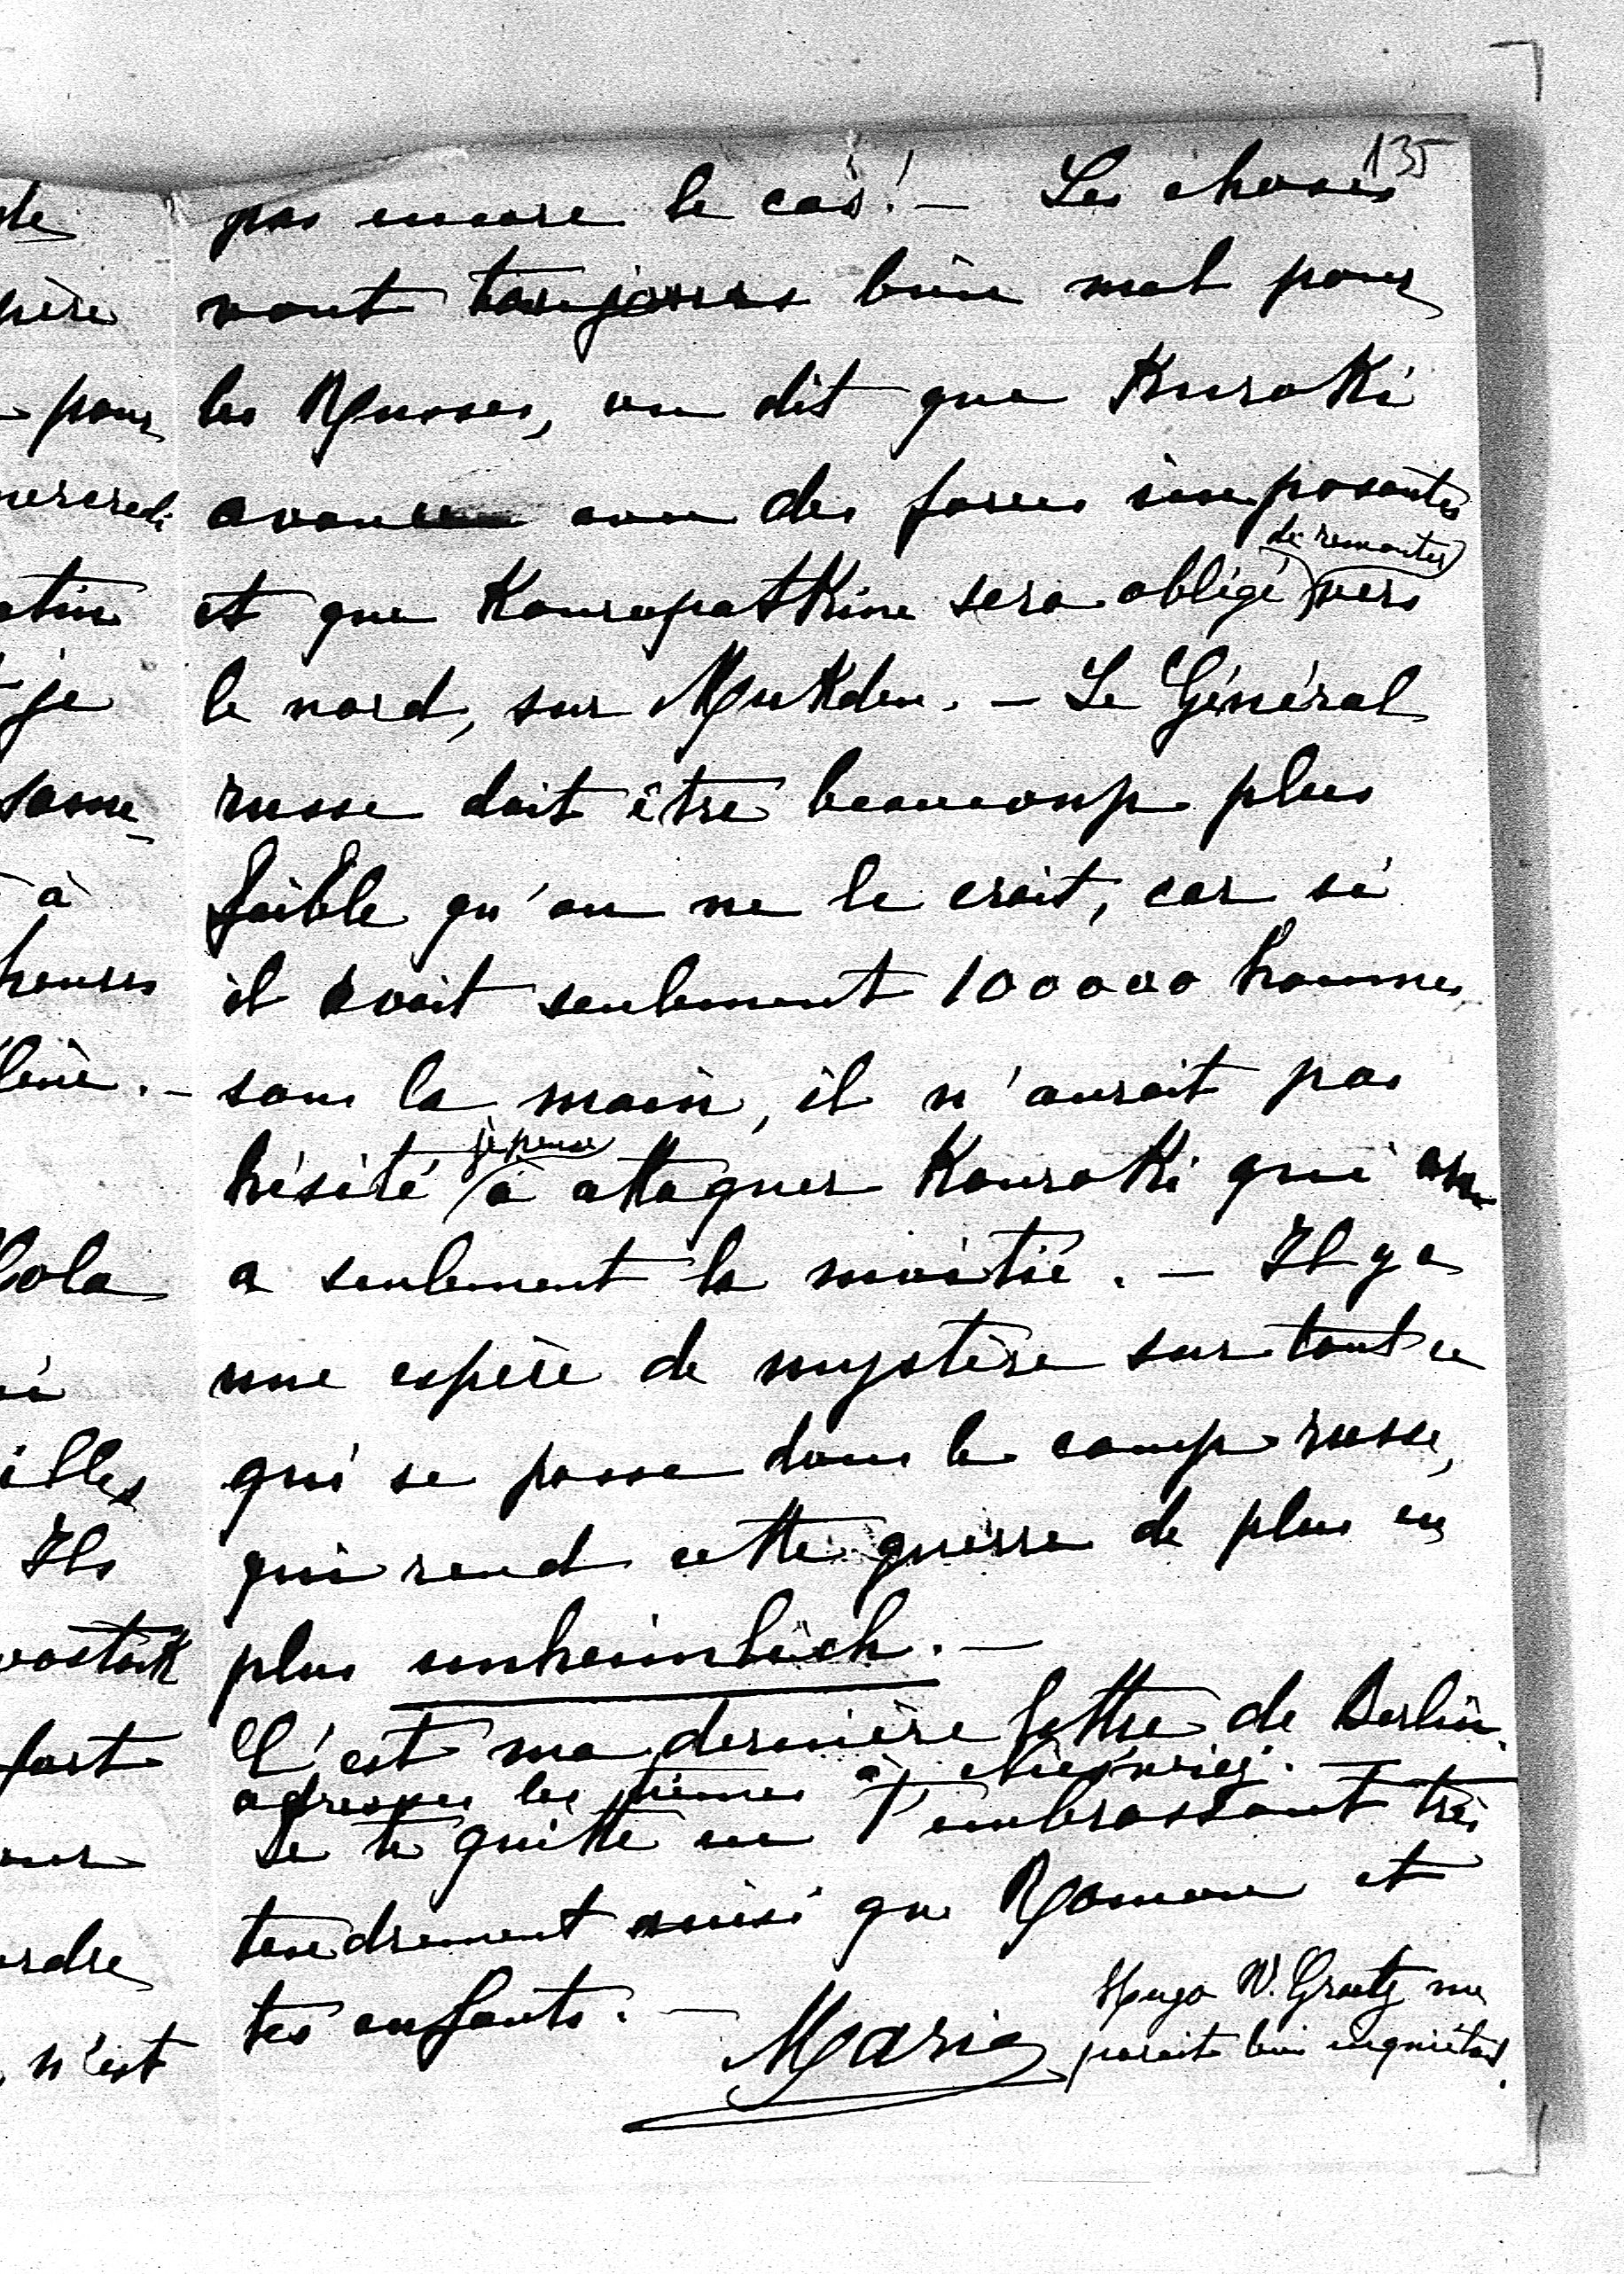 135
pas encore le cas! — Les choses
vont toujours bien mal pour
les Russes, on dit que Kuroki
avance avec des forces imposantes
de remonter
et que Kouropatkine sera obligé vers
le nord, sur Mukden. — Le Général
russe doit être beaucoup plus
faible qu'on ne le croit, car si
il avait seulement 100000 hommes
sous la main, il n'aurait pas
je pense
hésité à attaquer Kouroki qui en
a seulement la moitié. — Il y a
une espèce de mystère sur tout ce
qui se passe dans le camp russe,
qui rend cette guerre de plus en
plus unheimlich. —
C'est ma dernière lettre de Berlin,
adresses les tiennes à
Je te quitte en t'embrassant très
tendrement ainsi que Romano et
tes enfants. —
Marie
Hugo W. Graetz me
paraît bien inquiétant.
de
père
pour
mercredi
je
à
heures
Ils
fort
n'est